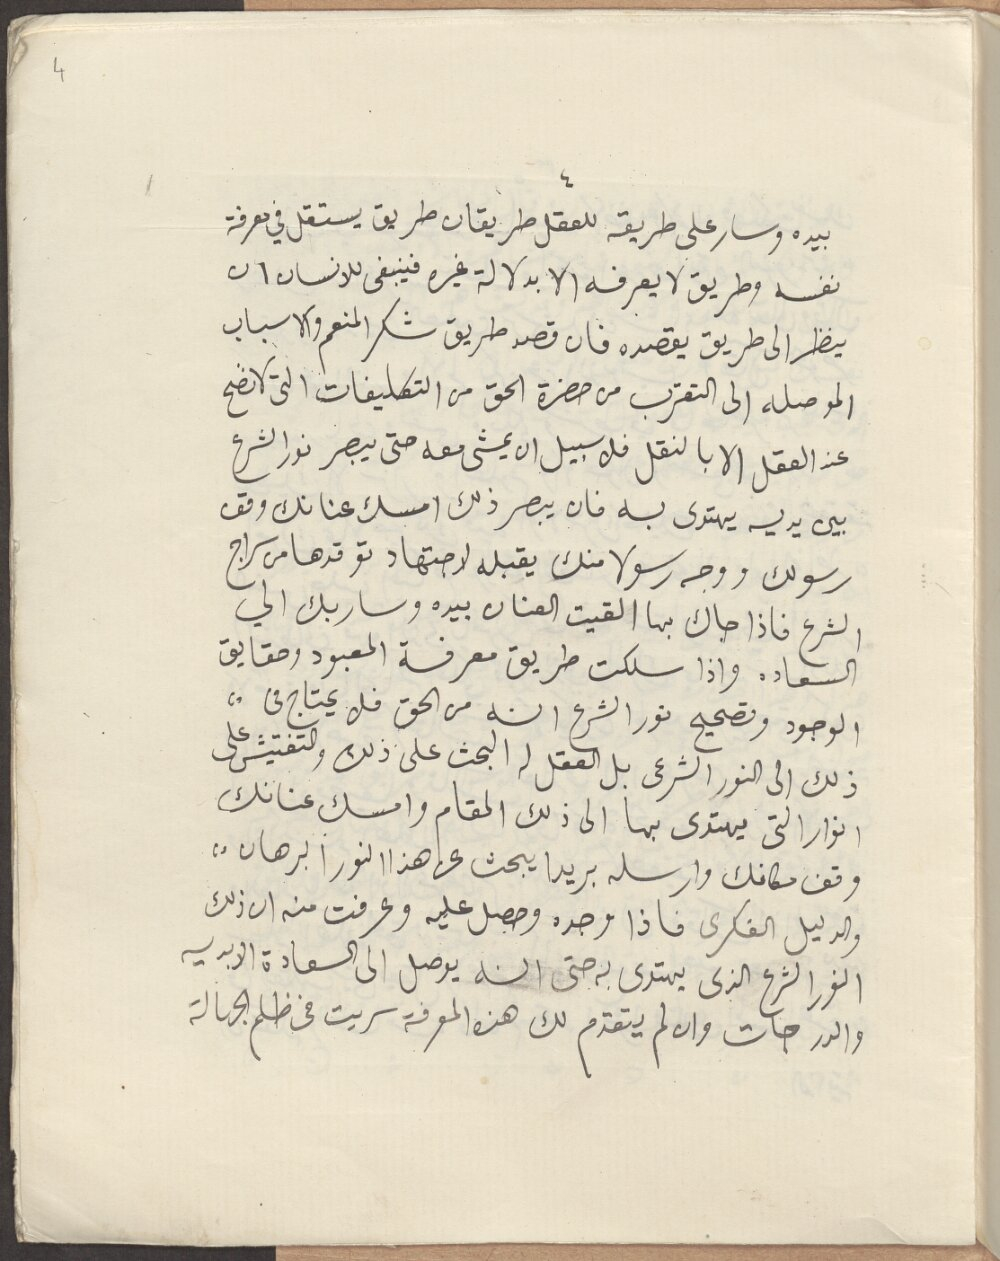 4
٤
بيده وسار على طريقه للعقل طريقان طريق يستقل في معرفة
نفسه وطريق لا يعرفه الا بدلالة غيره فينبغى للانسان ان
ينظر الى طريق يقصده فان قصد طريق شكر المنعم والاسباب
الموصله الى التقرب من حضرة الحق من التكليفات التى لا تضح
عند العقل الا بالنقل فلا سبيل ان يمشى معه حتى يبصر نور الشرع
بين يديه يهتدى به فان يبصر ذلك امسك عنانك وقف
رسولك ووجه رسولا منك يقبله لاجتهاد توقدها من سراج
الشرع فاذا جاك بها القيت العنان بيده وسار بك الي
السعاده واذا سلكت طريق معرفة المعبود وحقايق
الوجود وتصحيح نور الشرع انه من الحق فلا يحتاج فى
ذلك الى النور الشرعى بل العقل له البحث على ذلك والتفتيش على
انوار التى يهتدى بها الى ذلك المقام وامسك عنانك
وقف مكانك وارسله بريدا يبحث عن هذا النور البرهان
والدليل الفكرى فاذا وجده وحصل عليه وعرفت منه ان ذلك
النور الشرع الذى يهتدى به حتى انه يوصل الى السعادة الابديه
والدرجات وان لم يتقدم لك هذه المعرفة سريت فى ظلم الجهالة